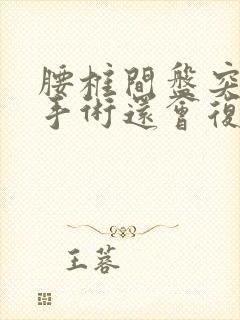 腰椎間盤突
手術還會復
王蓉